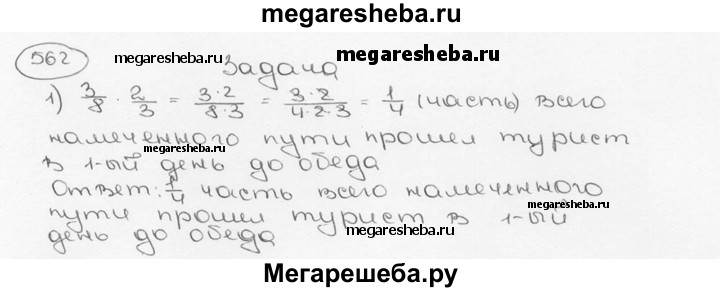 megaresheba.ru
562
megaresheba.ru
megaresheba.ru
Задача
1) 3/8 · 2/3 = 3·2/8·3 = 3·2/4·2·3 = 1/4 (часть) всего
намеченного пути прошел турист
megaresheba.ru
в 1-ый день до обеда
Ответ: 1/4 часть всего намеченного
megaresheba.ru
пути прошел турист в 1-ый
день до обеда
megaresheba.ru
megaresheba.ru
Мегарешеба.ру